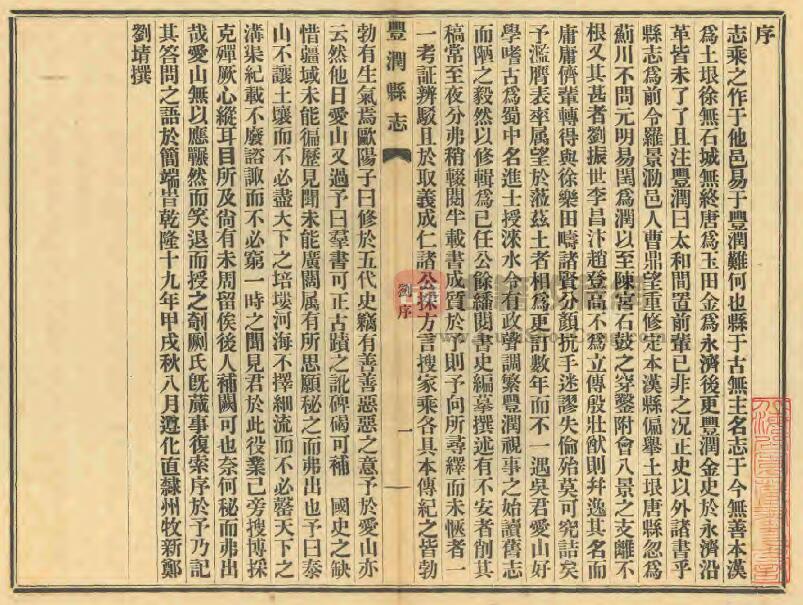 序
志乘之作于他邑易于豐潤難何也縣于古無主名志于今無善本漢
爲土垠徐無石城無終唐爲玉田金爲永濟後更豐潤金史於永濟沿
革皆未了了且注豐潤曰太和間置前輩已非之况正史以外諸書乎
縣志爲前令羅景泐邑人曹鼎望重修定本漢縣偏舉土垠唐縣忽爲
薊川不問元明易閏爲潤以至陳宮石鼓之穿鑿附會八景之支離不
根又其甚者劉振世李昌汴趙登高不爲立傳殷壯猷則幷逸其名而
庸庸儕輩轉得與徐樂田疇諸賢分顏抗手迷謬失倫殆莫可究詰矣
予濫膺表率属望於蒞茲土者相爲更訂數年而不一遇吳君愛山好
學嗜古爲蜀中名進士授淶水令有政聲調繁豐潤視事之始讀舊志
而陋之毅然以修輯爲已任公餘繙閱書史編摹撰述有不安者削其
稿常至夜分弗稍輟閱半載書成質於予則予向所尋繹而未愜者一
一考証辨駁且於取義成仁諸公採方言搜家乘各具本傳紀之皆勃
豐潤縣志
劉序
一
勃有生氣焉歐陽子曰修於五代史竊有善善惡惡之意予於愛山亦
云然他日愛山又過予曰羣書可正古蹟之訛碑碣可補 國史之缺
惜疆域未能徧歷見聞未能廣闊属有所思願秘之而弗出也予曰泰
山不讓土壤而不必盡天下之培塿河海不擇細流而不必罄天下之
溝渠紀載不廢諮諏而不必窮一時之聞見君於此役業已旁搜博採
克殫厥心縱耳目所及尙有未周留俟後人補闕可也奈何秘而弗出
哉愛山無以應囅然而笑退而授之剞劂氏旣蕆事復索序於予乃記
其答問之語於簡端旹乾隆十九年甲戌秋八月遵化直隸州牧新鄭
劉埥撰